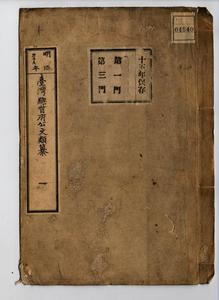 十五年保存
第一門
第三門
明治
年
臺灣總督府公文類纂
一